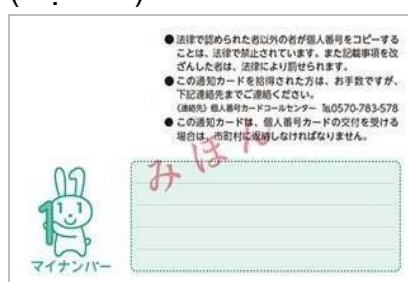 ●法律で認められた者以外の者が個人番号をコピーする
ことは、法律で禁止されています。また記載事項を改
ざんした者は、法律により罰せられます。
●この通知カードを拾得された方は、お手数ですが、
下記連絡先までご連絡ください。
(連絡先)個人番号カードコールセンター ℡0570-783-578
●この通知カードは、個人番号カードの交付を受ける
場合は、市町村に返納しなければなりません。
みほん
1
マイナンバー